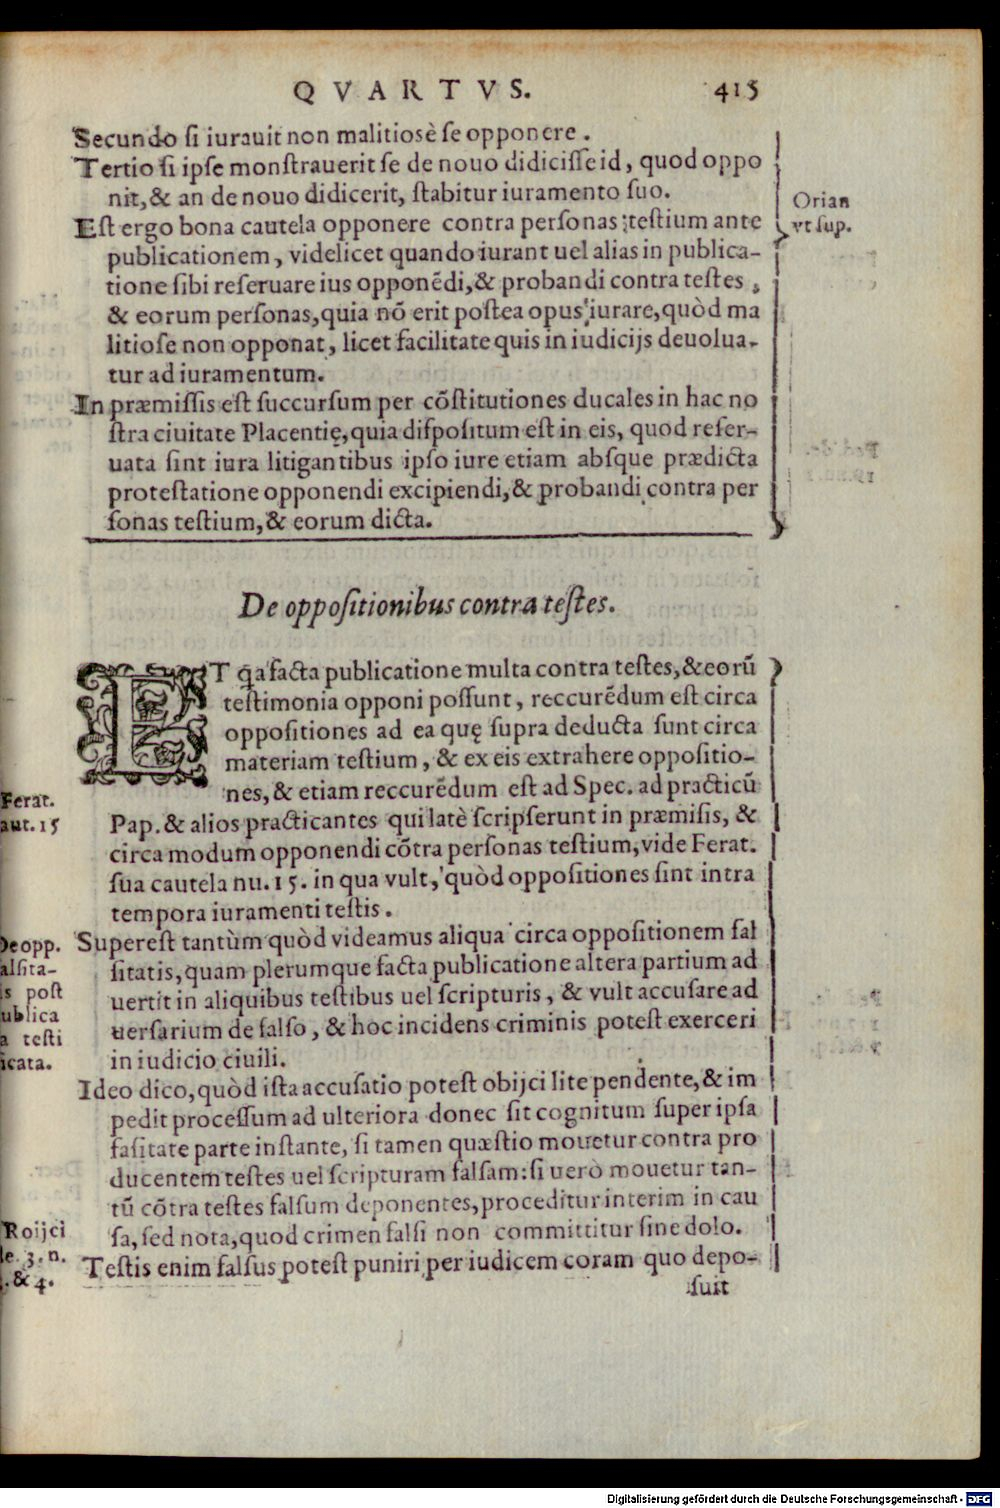 QVARTVS. 415
Secundo si iurauit non malitiosè se opponere.
Tertio si ipse monstrauerit se de nouo didicisse id, quod oppo
nit, & an de nouo didicerit, stabitur iuramento suo.
Orian
vt sup.
Est ergo bona cautela opponere contra personas testium ante
publicationem, videlicet quando iurant uel alias in publica-
tione sibi reseruare ius opponēdi, & probandi contra testes,
& eorum personas, quia nō erit postea opus iurare, quòd ma
litiose non opponat, licet facilitate quis in iudicijs deuolua-
tur ad iuramentum.
In præmissis est succursum per cōstitutiones ducales in hac no
stra ciuitate Placentię, quia dispositum est in eis, quod reser-
uata sint iura litigantibus ipso iure etiam absque prædicta
protestatione opponendi excipiendi, & probandi contra per
sonas testium, & eorum dicta.
De oppositionibus contra testes.
ET q̄a facta publicatione multa contra testes, & eorū
testimonia opponi possunt, reccurēdum est circa
oppositiones ad ea quę supra deducta sunt circa
materiam testium, & ex eis extrahere oppositio-
nes, & etiam reccurēdum est ad Spec. ad practicū
Pap. & alios practicantes qui latè scripserunt in præmisis, &
circa modum opponendi cōtra personas testium, vide Ferat.
sua cautela nu. 15. in qua vult, quòd oppositiones sint intra
tempora iuramenti testis.
Ferat.
aut. 15
Superest tantùm quòd videamus aliqua circa oppositionem fal
sitatis, quam plerumque facta publicatione altera partium ad
uertit in aliquibus testibus uel scripturis, & vult accusare ad
uersarium de falso, & hoc incidens criminis potest exerceri
in iudicio ciuili.
De opp.
alsita-
is post
ublica
a testi
icata.
Ideo dico, quòd ista accusatio potest obijci lite pendente, & im
pedit processum ad ulteriora donec sit cognitum super ipsa
fasitate parte instante, si tamen quæstio mouetur contra pro
ducentem testes uel scripturam falsam: si uerò mouetur tan-
tū cōtra testes falsum deponentes, proceditur interim in cau
sa, sed nota, quod crimen falsi non committitur sine dolo.
Testis enim falsus potest puniri per iudicem coram quo depo-
suit
Roijci
le. 3. n.
. & 4.
Digitalisierung gefördert durch die Deutsche Forschungsgemeinschaft - DFG